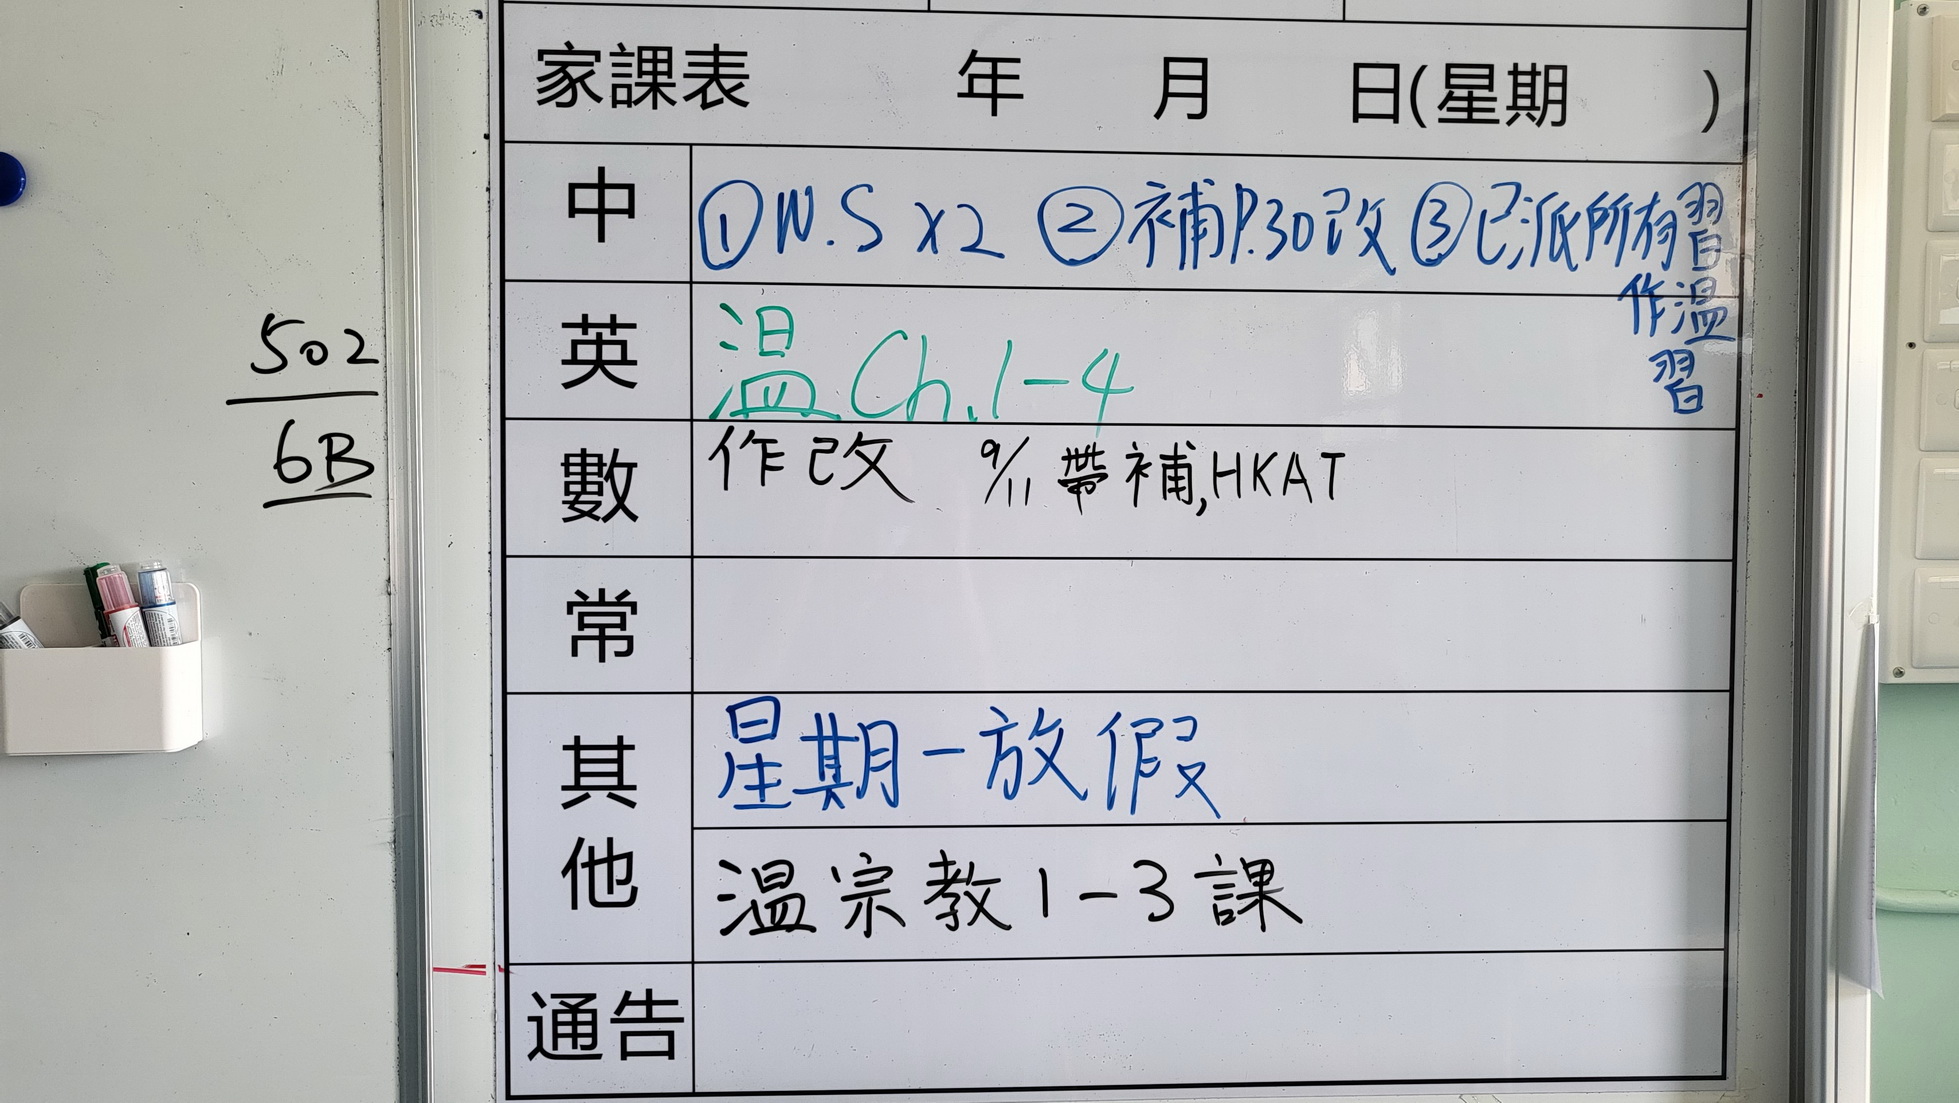 家課表 年 月 日(星期 )
中 ①W.S x2 ②補P.30改 ③已派所有習
作温
習
英 温 Ch.1-4
數 作改 9/11帶補,HKAT
常
其他 星期一放假
温宗教1-3課
通告
502
6B